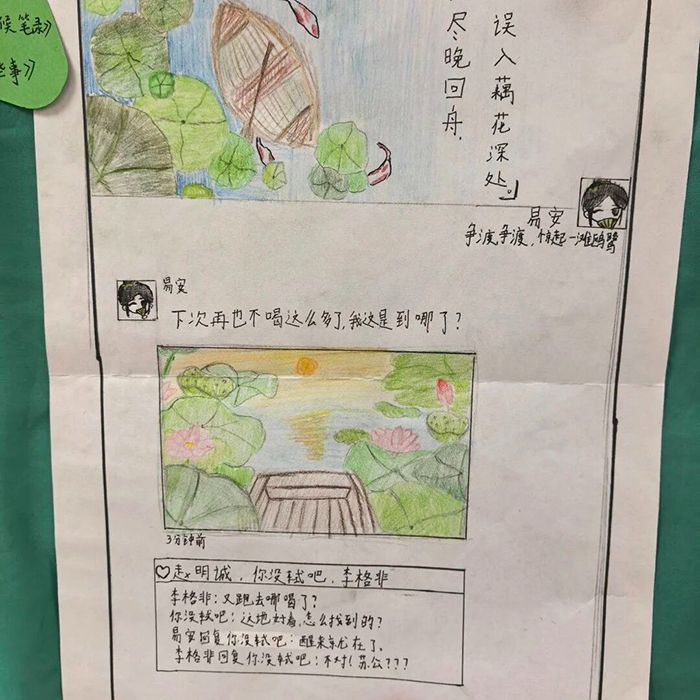 候笔录》
些事》
尽晚回舟,
误入藕花深处。」
易安
争渡,争渡,惊起一滩鸥鹭
易安
下次再也不喝这么多了,我这是到哪了?
3分钟前
♡赵明城,你没轼吧,李格非
李格非:又跑去哪喝了?
你没轼吧:这地好看,怎么找到的?
易安回复你没轼吧:醒来就在了.
李格非回复你没轼吧:不对!苏公???